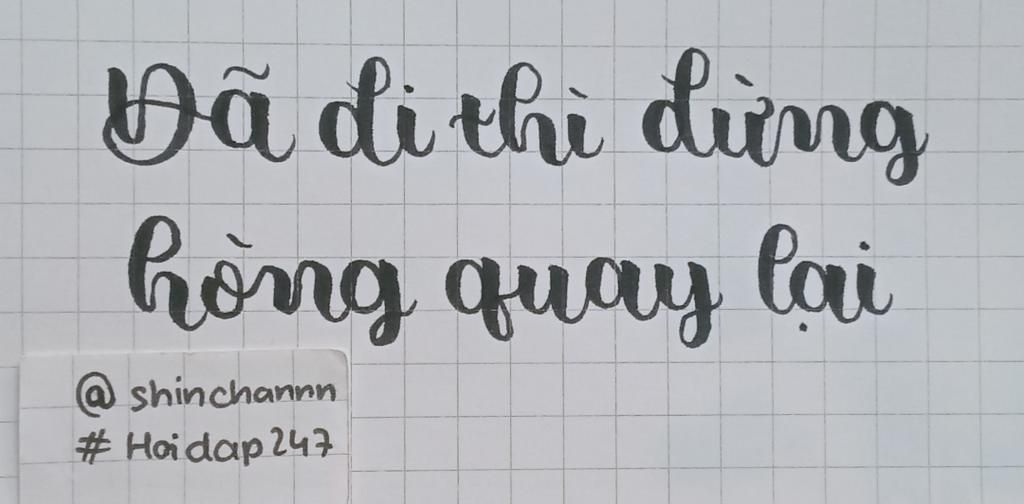 Đã đi thì đừng
hòng quay lại
@ shinchannn
# Hoidap247